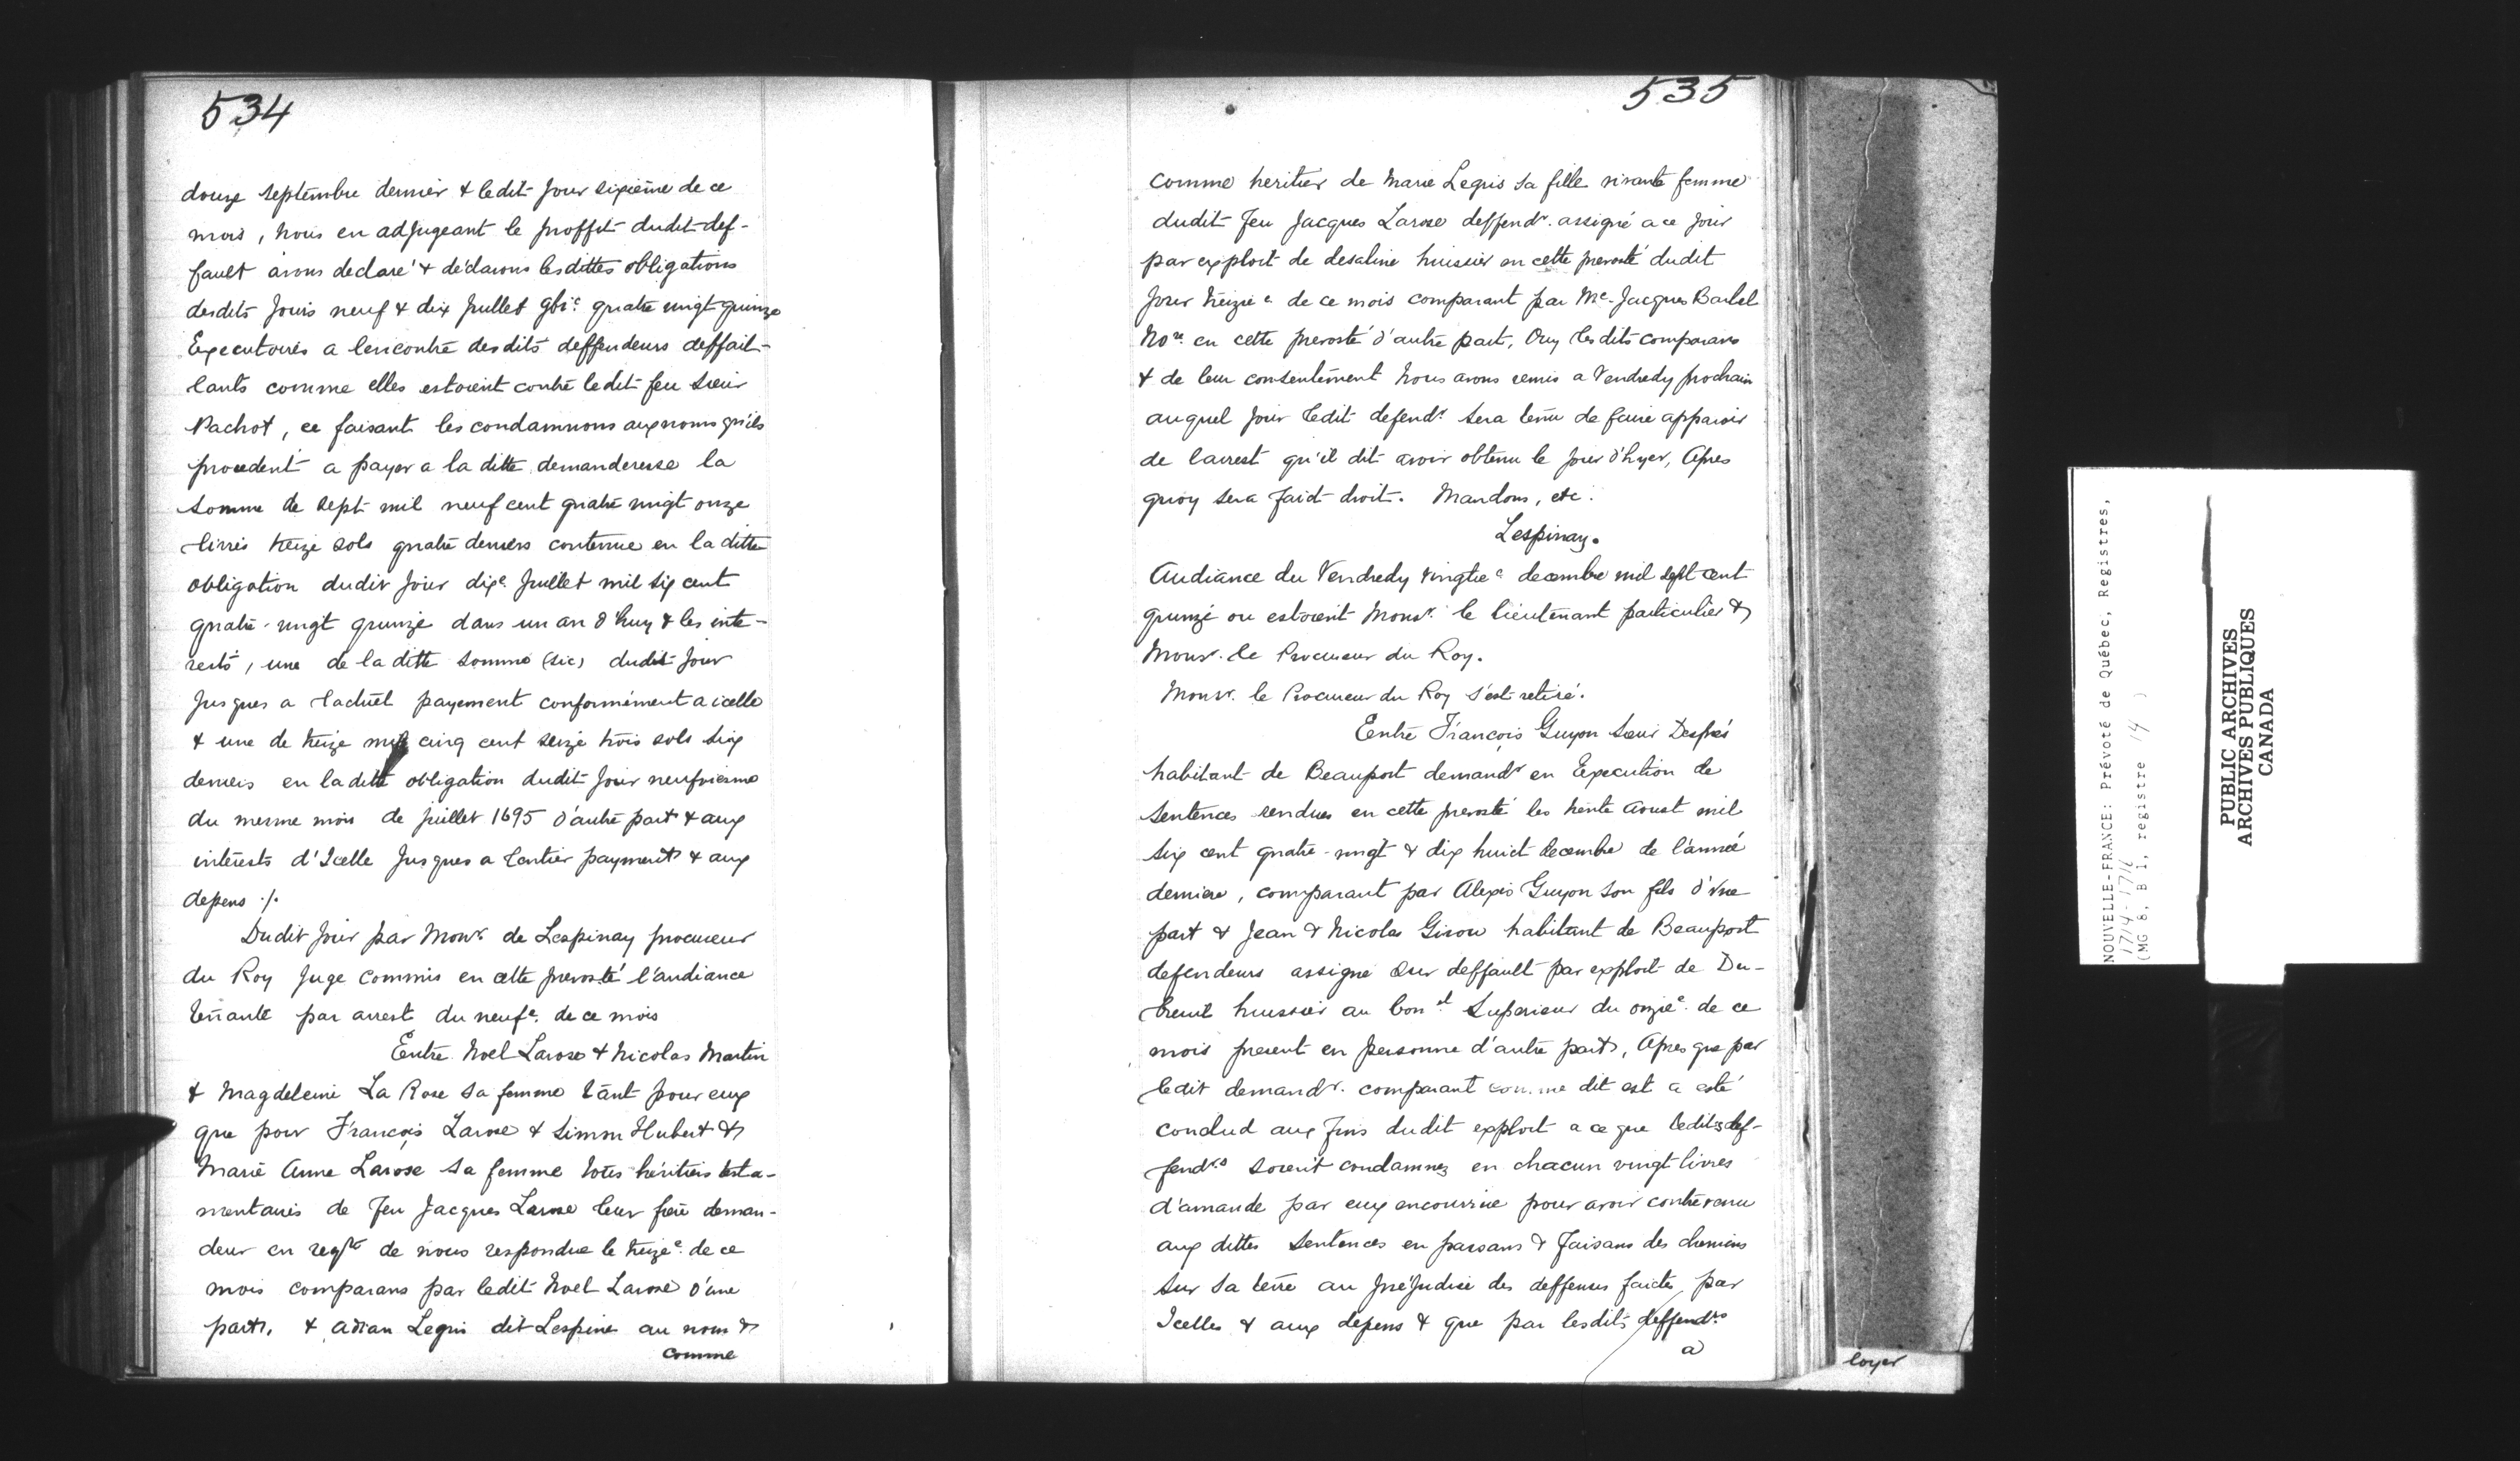 534
douze septembre dernier & ledit Jour sixiéme de ce
mois, nous en adjugeant le proffit dudit def-
fault avons declaré & déclarons lesdittes obligations
desdits Jours neuf & dix Juillet gbic quatre vingt quinze
Executoires a lencontre desdits deffendeurs deffail-
lants comme elles estoient contre ledit feu sieur
Pachot, ce faisant les condamnons aux noms qu'ils
procedent a payer a la ditte demanderesse la
somme de sept mil neuf cent quatre vingt onze
livres treize sols quatre deniers contenue en la ditte
obligation dudit Jour dixe Juillet mil six cent
quatre-vingt quinze dans un an d'huy & les inte-
rests, une de la ditte somme (sic) dudit Jour
Jusques a lactuel payement conformément a icelle
& une de treize mil cinq cent seize trois sols six
deniers en la ditte obligation dudit Jour neufviesme
du mesme mois de juillet 1695 d'autre part & aux
intérests d'Icelle Jusques a lentier payment & aux
depens ./.
Dudit Jour par Monr. de Lespinay procureur
du Roy Juge Commis en cette prevosté l'audiance
tenante par arrest du neufe. de ce mois
Entre Noel Larose & Nicolas Martin
& Magdeleine La Rose sa femme tant pour eux
que pour François Larose & Simon Hubert &
Marie Anne Larose sa femme tous héritiers testa-
mentaires de Feu Jacques Larose leur frère deman-
deur en reqte de nous respondue le treize. de ce
mois comparans par ledit Noel Larose d'une
part, & Adrian Legris dit Lespine au nom &
comme
535
comme heritier de Marie Legris sa fille vivante femme
dudit Feu Jacques Larose deffendr. assigné a ce Jour
par exploit de desaline huissier en cette prevosté dudit
Jour treizie de ce mois comparant par Me. Jacques Barbel
Nore en cette prevosté d'autre part, Ouy lesdits comparans
& de leur consentement Nous avons remis a Vendredy prochain
auquel Jour ledit defendr. sera tenu de faire apparoir
de larrest qu'il dit avoir obtenu le Jour d'hyer, Apres
quoy sera faict droit. Mandons, etc.
Lespinay.
Audiance du Vendredy vingtie decembre mil sept cent
quinze ou estoient Monsr. le lieutenant particulier &
Monsr. le Procureur du Roy.
Monsr. le Procureur du Roy s'est retiré.
Entre François Guyon sieur Després
habitant de Beauport demandr en Execution de
sentences rendues en cette prevosté les trente Aoust mil
six cent quatre-vingt & dix huict decembre de l'année
derniere, comparant par Alexis Guyon son fils d'Une
part & Jean & Nicolas Girou habitant de Beauport
defendeurs assigné sur deffault par exploit de Du-
breuil huissier au Conel Superieur du onzie. de ce
mois present en personne d'autre part, Apres que par
ledit demandr. comparant comme dit est a esté
conclud aux Fins dudit exploit a ce que lesdits def-
fendrs soient condamnez en chacun vingt livres
d'amande par eux encourrüe pour avoir contrevenu
aux dittes sentences en passans & faisans des chemins
sur sa terre au préjudice des deffenses faictes par
Icelles & aux depens & que par lesdits deffendrs
a
loyer
NOUVELLE-FRANCE: Prévoté de Québec, Registres,
1714-1716
(MG 8, B 1, registre 14 )
PUBLIC ARCHIVES
ARCHIVES PUBLIQUES
CANADA